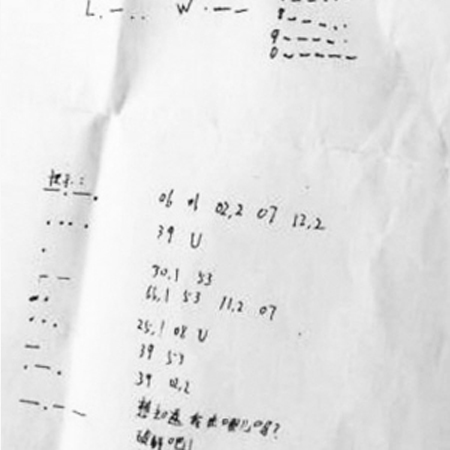 L. — . .   W . — —
8 — — — . .
9 — — — — .
0 — — — — —
提示:
— . — .
06 01 02.2 07 12.2
. . . .
39 U
.
30.1 53
— —
55.1 53 11.2 07
. .
. . .
25.1 08 U
—
39 53
. — .
39 02.2
— . — —
想知道 我在哪儿吗?
破解吧!